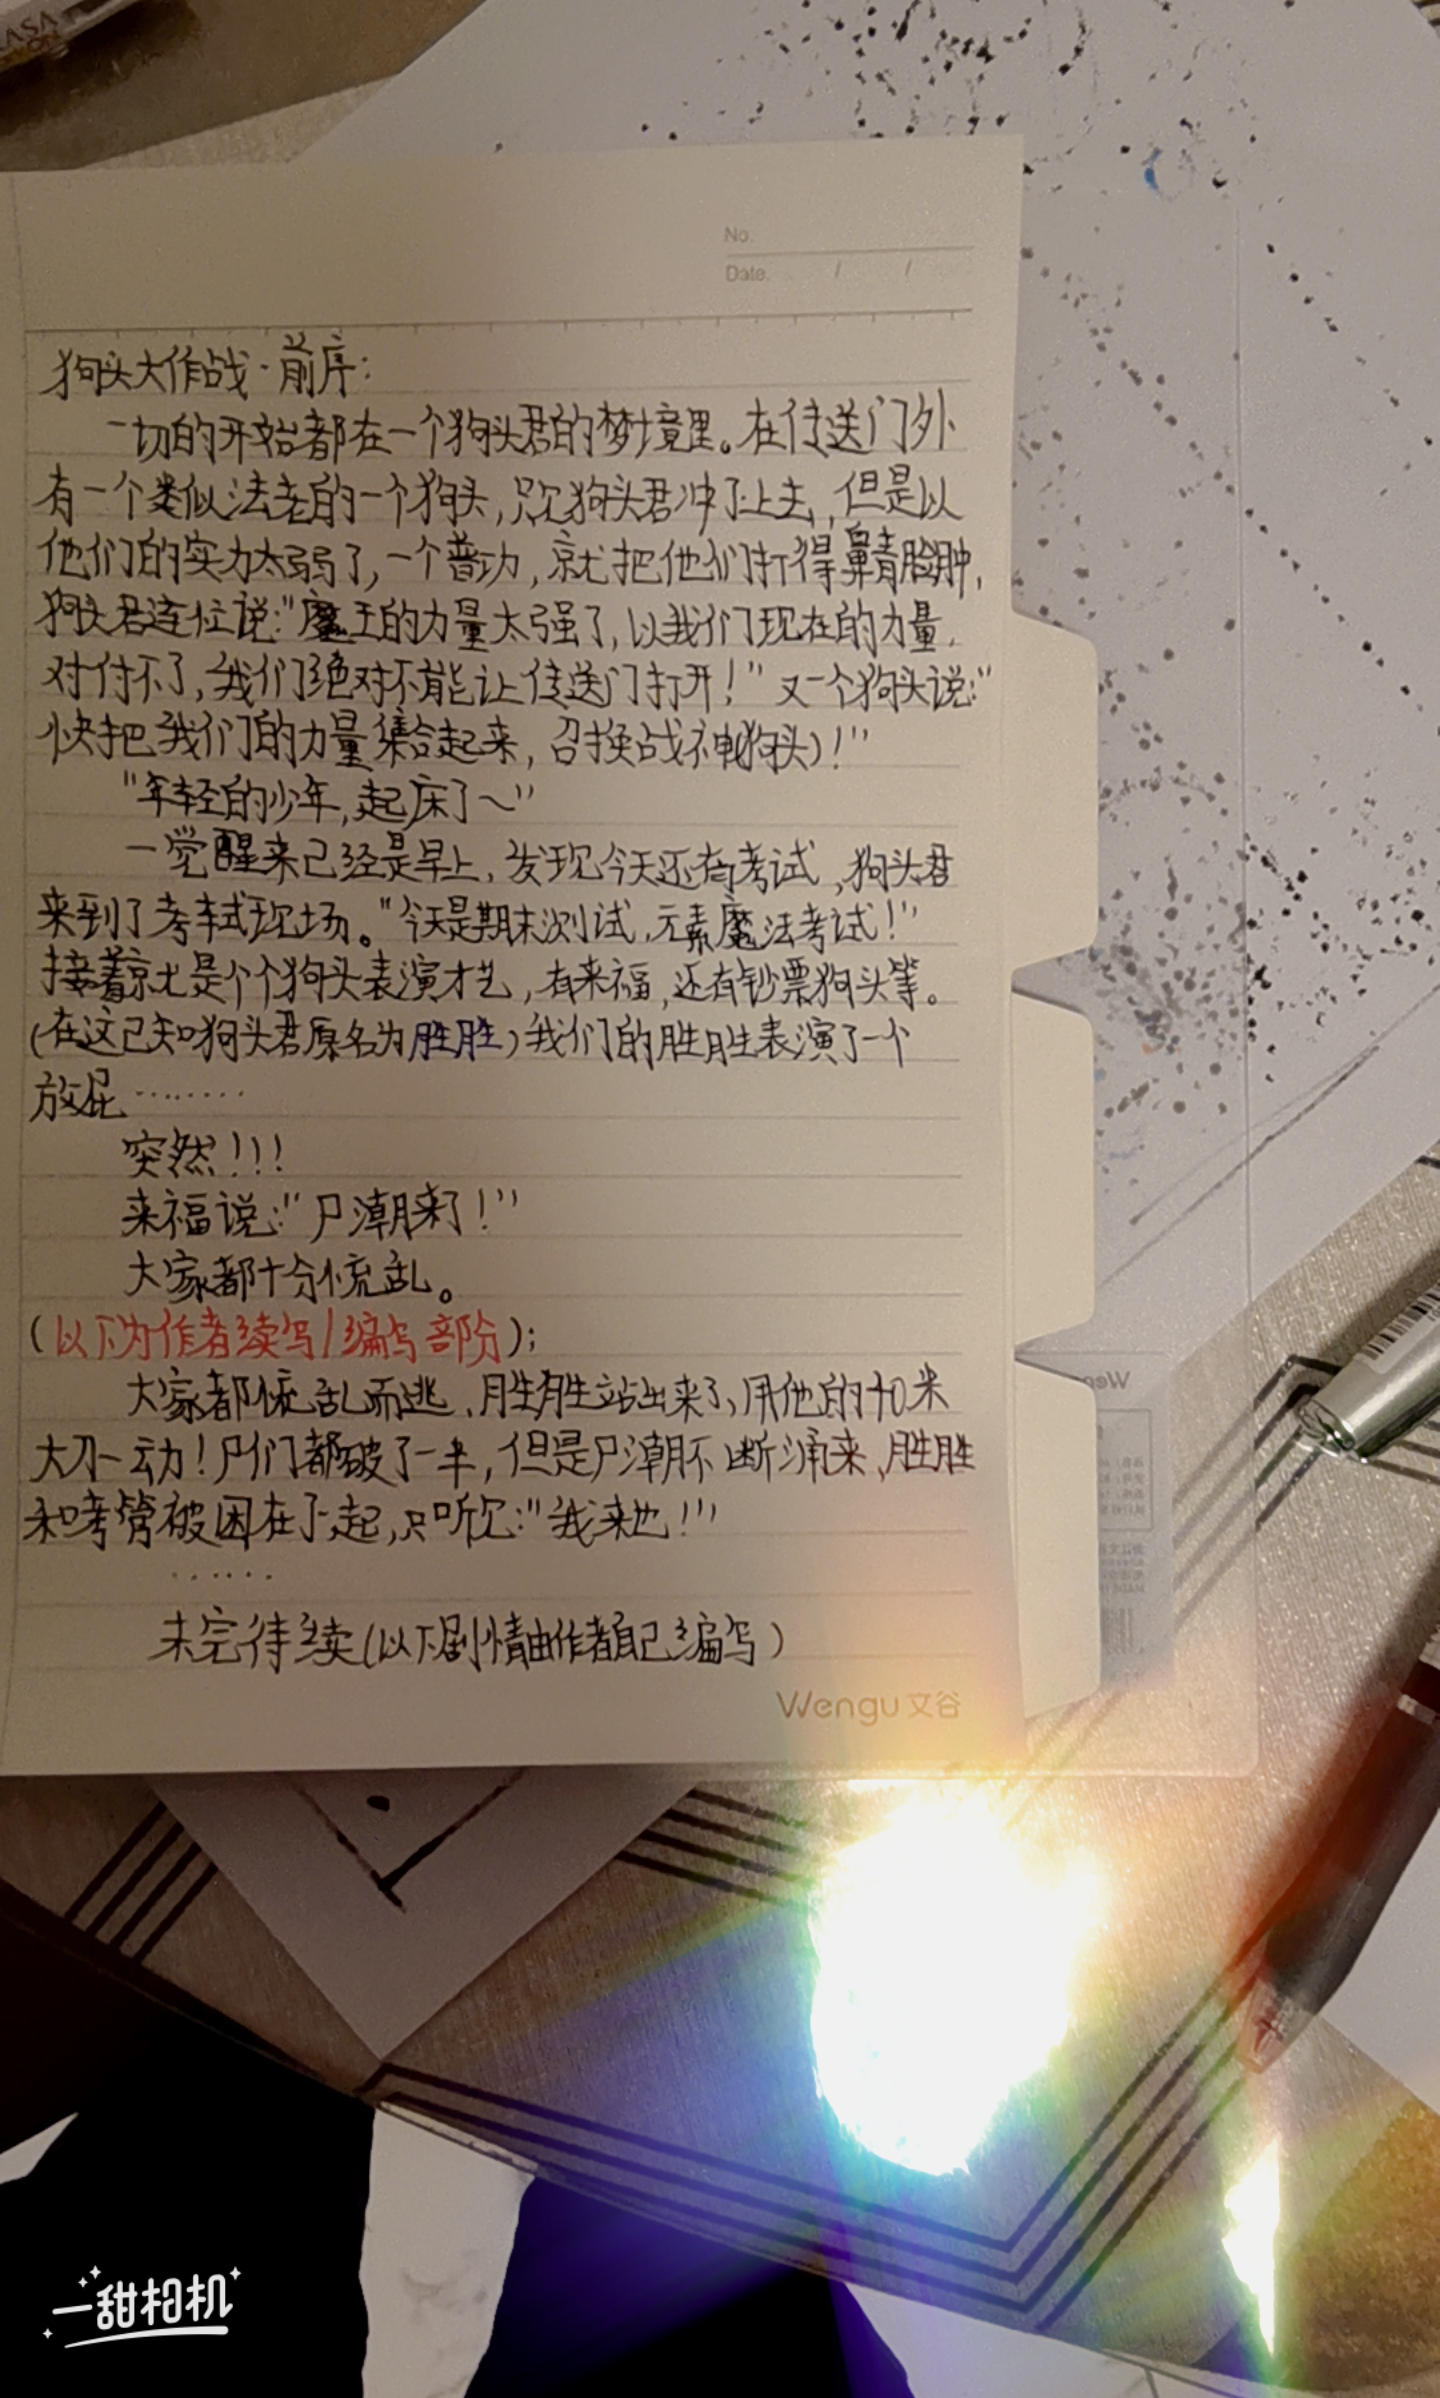 ASA
No.
Date. / /
狗头大作战·前序:
一切的开始都在一个狗头君的梦境里。在传送门外
有一个类似法老的一个狗头,只见狗头君冲了上去,但是以
他们的实力太弱了,一个普功,就把他们打得鼻青脸肿,
狗头君连位说:"魔王的力量太强了,以我们现在的力量,
对付不了,我们绝对不能让传送门打开!"又一个狗头说:"
快把我们的力量集合起来,召换战神(狗头)!"
"年轻的少年,起床了~"
一觉醒来已经是早上,发现今天还有考试,狗头君
来到了考试现场。"今天是期末测试,元素魔法考试!"
接着就是个个狗头表演才艺,有来福,还有钞票狗头等。
(在这已知狗头君原名为胜胜)我们的胜胜表演了一个
放屁········
突然!!!
来福说:"尸潮来了!"
大家都十分慌乱。
(以下为作者续写/编写部份):
大家都慌乱而逃,胜胜站出来了,用他的40米
大刀一动!尸们都破了一半,但是尸潮不断涌来,胜胜
和考管被困在了一起,只听见:"我来也!"
······
未完待续(以下剧情由作者自己编写)
Wengu 文谷
一甜相机